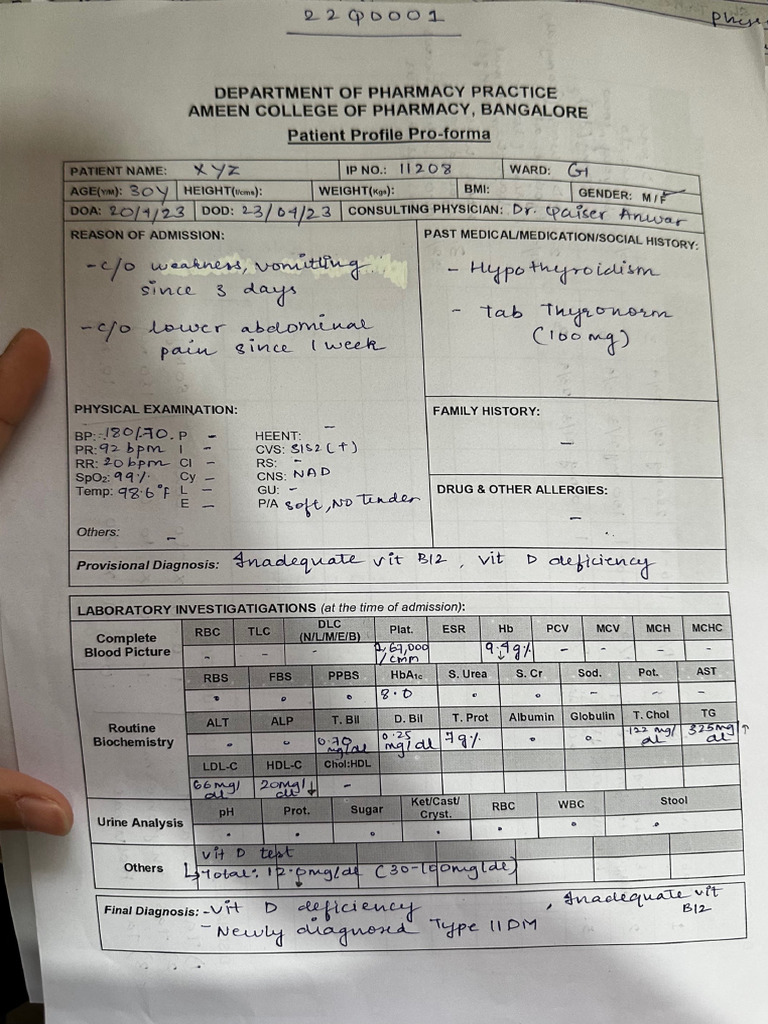 22Q0001
DEPARTMENT OF PHARMACY PRACTICE
AMEEN COLLEGE OF PHARMACY, BANGALORE
Patient Profile Pro-forma
PATIENT NAME: XYZ IP NO.: 11208 WARD: G1
AGE(Y/M): 30Y HEIGHT(f/cms): WEIGHT(Kgs): BMI: GENDER: M/F
DOA: 20/4/23 DOD: 23/04/23 CONSULTING PHYSICIAN: Dr. Qaiser Anwar
REASON OF ADMISSION: PAST MEDICAL/MEDICATION/SOCIAL HISTORY:
- c/o weakness, vomitting - Hypothyroidism
since 3 days
- c/o lower abdominal - Tab Thyronorm
pain since 1 week (100 mg)
PHYSICAL EXAMINATION: FAMILY HISTORY:
BP: 180/70. P - HEENT: -
PR: 92 bpm I - CVS: S1S2 (+) -
RR: 20 bpm Cl - RS: -
SpO2: 99% Cy - CNS: NAD
Temp: 98.6°F L - GU: - DRUG & OTHER ALLERGIES:
E - P/A soft, NO Tender
-
Others: -
Provisional Diagnosis: Inadequate vit B12, vit D deficiency
LABORATORY INVESTIGATIGATIONS (at the time of admission):
Complete Blood Picture RBC TLC DLC (N/L/M/E/B) Plat. ESR Hb PCV MCV MCH MCHC
- - - 2,67,000 /cmm - 9.4g% ↓ - - - -
RBS FBS PPBS HbA1c S. Urea S. Cr Sod. Pot. AST
8.0 - - -
Routine Biochemistry ALT ALP T. Bil D. Bil T. Prot Albumin Globulin T. Chol TG
0.70 mg/dl 0.25 mg/dl 7g% 122 mg/dl 325mg/dl ↑
LDL-C HDL-C Chol:HDL
66mg/dl 20mg/dl ↓ -
Urine Analysis pH Prot. Sugar Ket/Cast/Cryst. RBC WBC Stool
Others Vit D test
↳ Total: 12.0mg/dl (30-100mg/dl)
↓
Final Diagnosis: - Vit D deficiency , Inadequate vit B12
- Newly diagnosed Type II DM